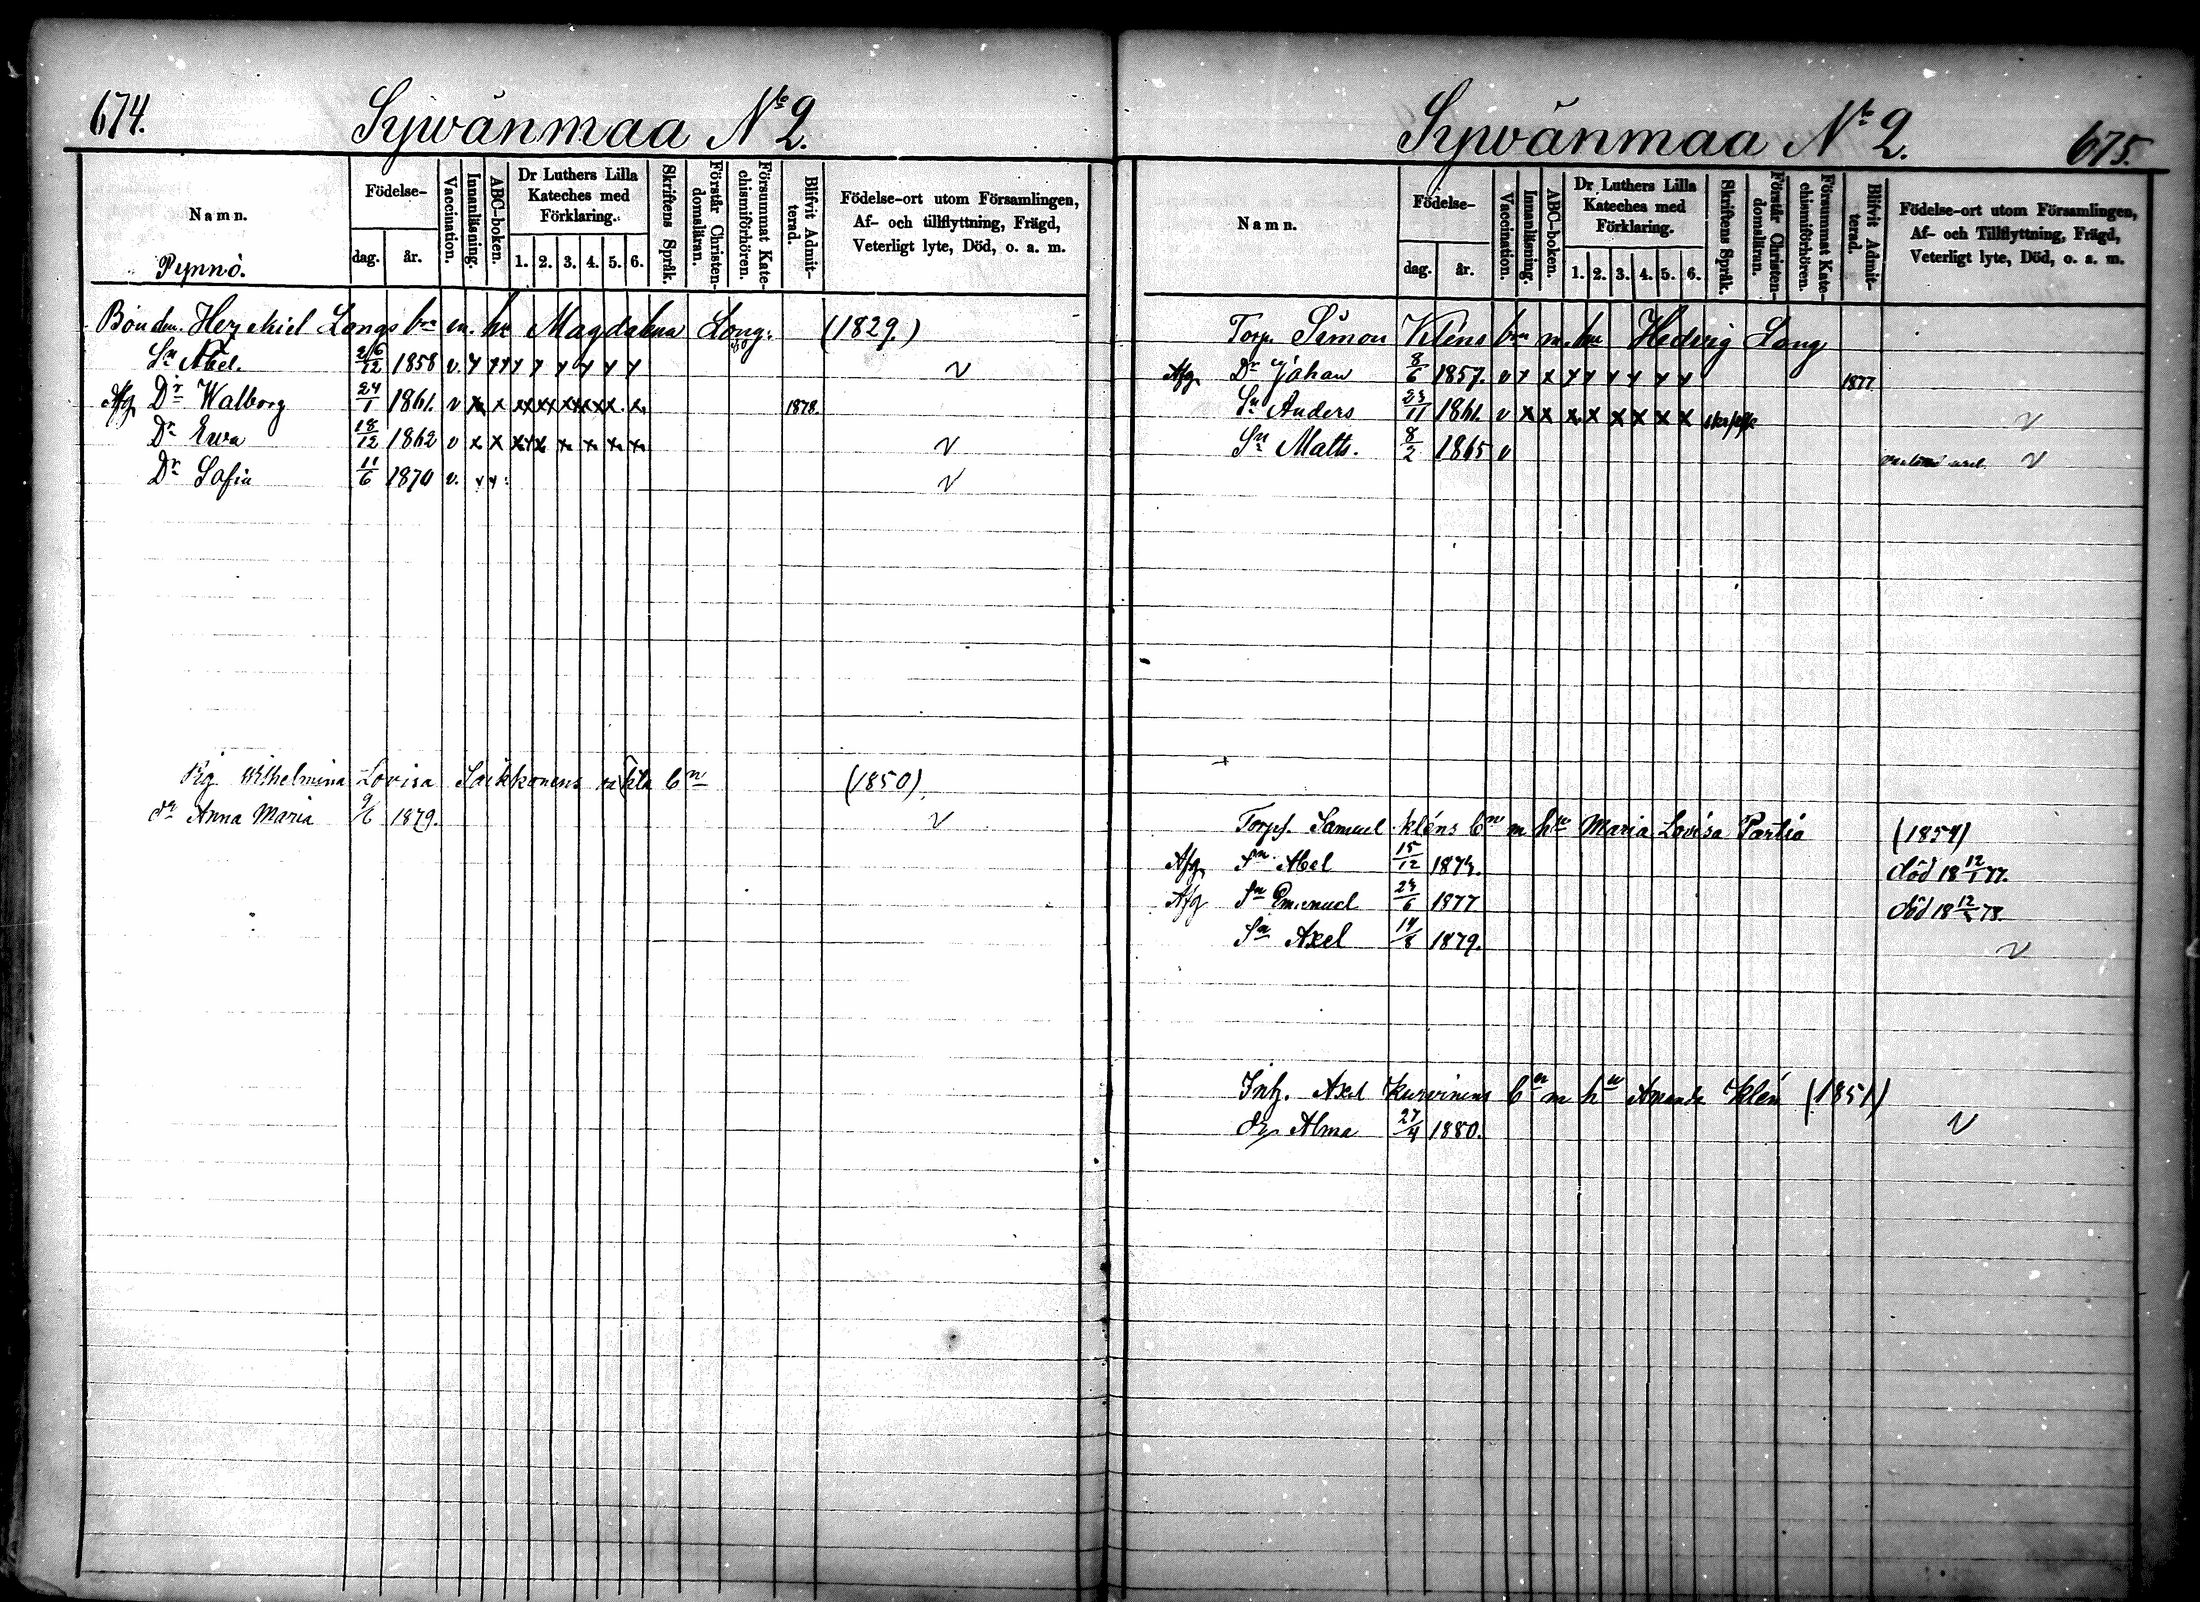 674.
Sywänmaa No 2.
Namn.
Födelse-
dag.
år.
Vaccination.
Innanläsning.
ABC-boken.
Dr Luthers Lilla
Kateches med
Förklaring.
1. 2. 3. 4. 5. 6.
Skriftens Språk.
Förstår Christen-
domsläran.
Försummat Kate-
chismiförhören.
Blifvit Admit-
terad.
Födelse-ort utom Församlingen,
Af- och tillflyttning, Frägd,
Veterligt lyte, Död, o. a. m.
Pynnö.
Bonden Hezekiel Longs bn m. hu Magdalena Long. (1829.)
Sn Abel. 26/12 1858 v. y y y y y y y y y v
Afg. Dr Walborg 24/1 1861. v x x x x x x x x 1878.
Dr Ewa 18/12 1862 v x x x x x x x x v
Dr Safia 11/6 1870 v. v v v
Pig Wilhelmina Lovisa Saikkonens bn (1850)
dr Anna Maria 9/6 1879. v
Sywänmaa No 2.
675.
Namn.
Födelse-
dag.
år.
Vaccination.
Innanläsning.
ABC-boken.
Dr Luthers Lilla
Kateches med
Förklaring.
1. 2. 3. 4. 5. 6.
Skriftens Språk.
Förstår Christen-
domsläran.
Försummat Kate-
chismiförhören.
Blifvit Admit-
terad.
Födelse-ort utom Församlingen,
Af- och Tillflyttning, Frägd,
Veterligt lyte, Död, o. a. m.
Torp. Simon Kléns bn m. hu Hedvig Long
Afg. Dr Johan 8/6 1857. v y x y y y y y y 1877
Sn Anders 23/11 1861. v x x x x x x x x v
Sn Matts. 8/2 1865 v v
Torpf. Samuel Kléns bn m hu Maria Lovisa Partio (1854)
Afg. Sn Abel 15/12 1874. död 18 12/1 77.
Afg Sn Emanuel 23/6 1877 död 18 12/5 78.
Sn Axel 14/8 1879. v
Inh. Axel Kurvinens bn m hu Amanda Klén (1851)
dr Alma 27/4 1880. v